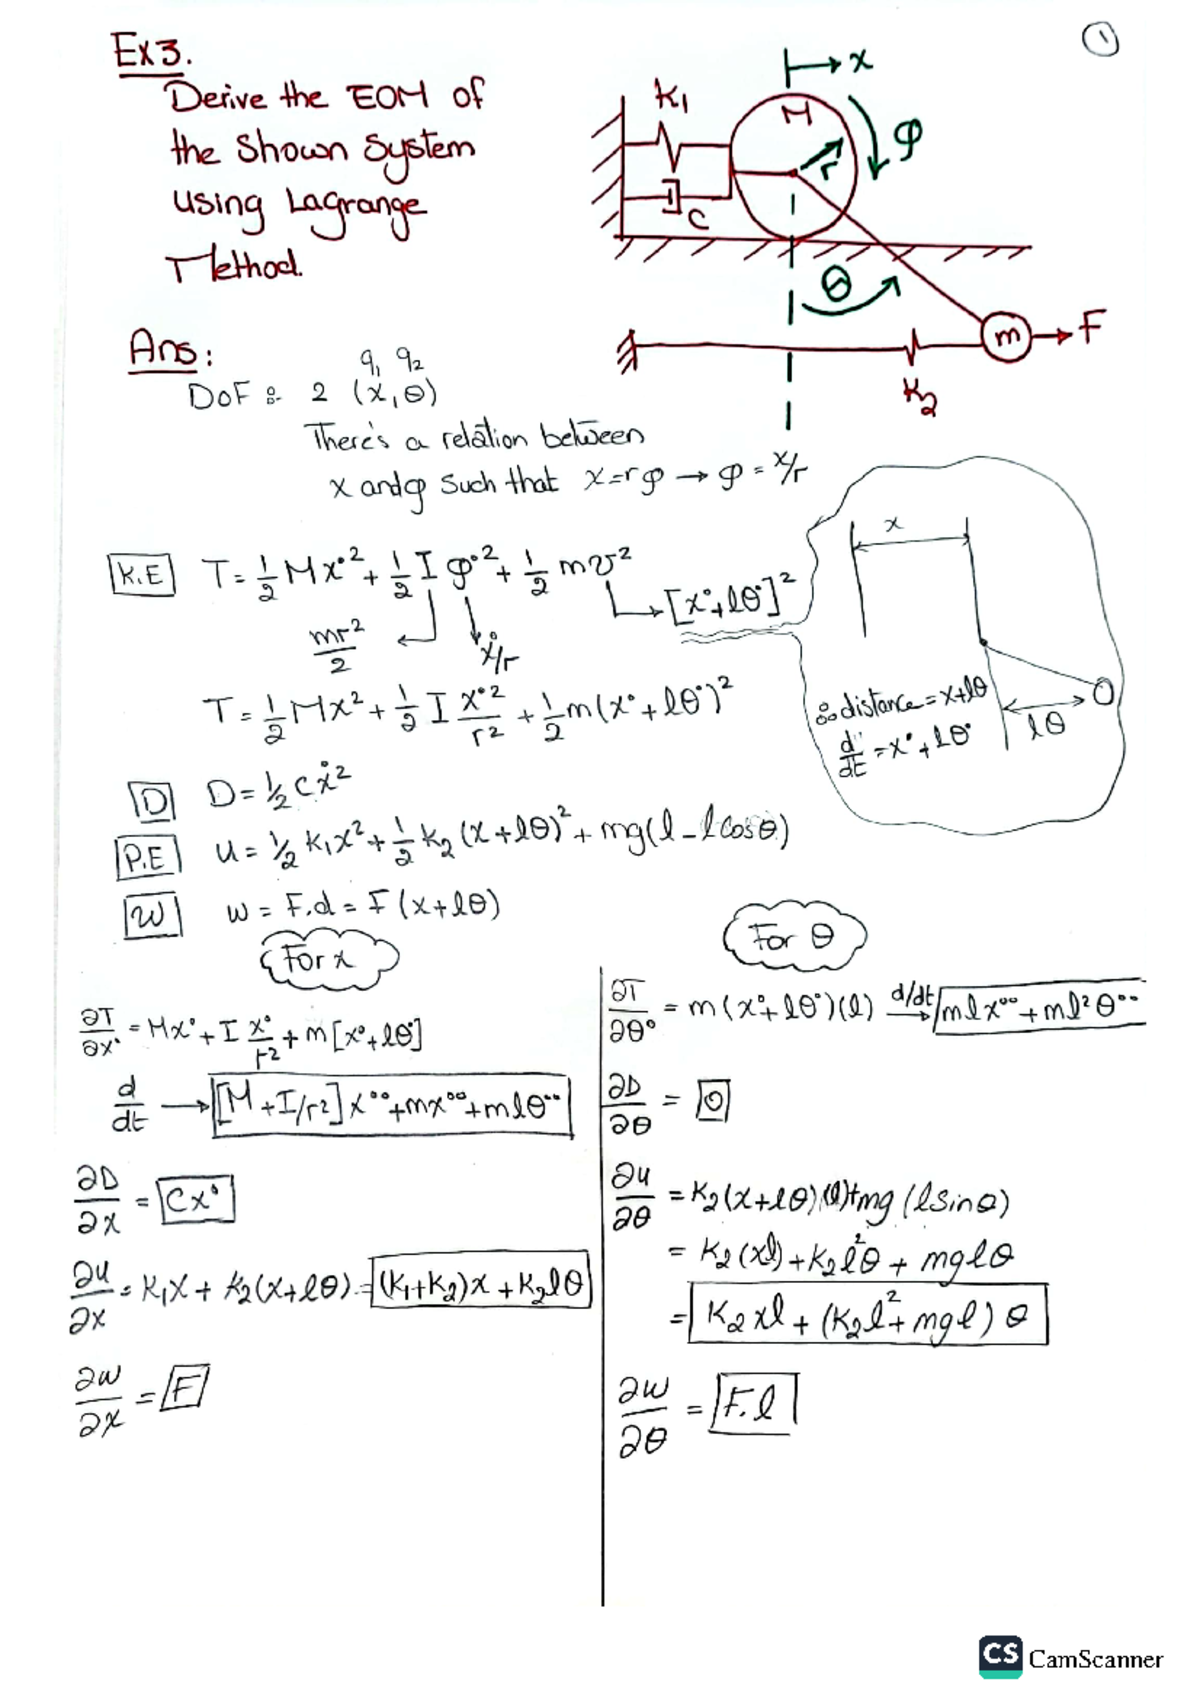 ①
Ex3.
Derive the EOM of
the Shown System
using Lagrange
Method.
x
K₁
M
φ
r
C
θ
m
F
K₂
Ans:
q₁ q₂
DoF :- 2 (x, θ)
There's a relation between
x and φ such that x = rφ → φ = x/r
K.E T = 1/2 Mẋ² + 1/2 I φ̇² + 1/2 m v²
→ [ẋ + lθ̇]²
mr²/2
ẋ/r
T = 1/2 Mẋ² + 1/2 I ẋ²/r² + 1/2 m(ẋ + lθ̇)²
x
∴ distance = x + lθ
d/dt = ẋ + lθ̇
lθ
D D = 1/2 cẋ²
P.E u = 1/2 K₁x² + 1/2 K₂ (x + lθ)² + mg(l - l cosθ)
W w = F.d = F (x + lθ)
For x
∂T/∂ẋ = Mẋ + I ẋ/r² + m[ẋ + lθ̇]
d/dt → [M + I/r²] ẍ + mẍ + mlθ̈
∂D/∂x = Cẋ
∂u/∂x = K₁x + K₂(x + lθ) = (K₁ + K₂)x + K₂lθ
∂w/∂x = F
For θ
∂T/∂θ̇ = m(ẋ + lθ̇)(l) d/dt → mlẍ + ml²θ̈
∂D/∂θ = 0
∂u/∂θ = K₂(x + lθ)(l) + mg (l sinθ)
= K₂(xl) + K₂l²θ + mglθ
= K₂xl + (K₂l² + mgl) θ
∂w/∂θ = F.l
CS CamScanner